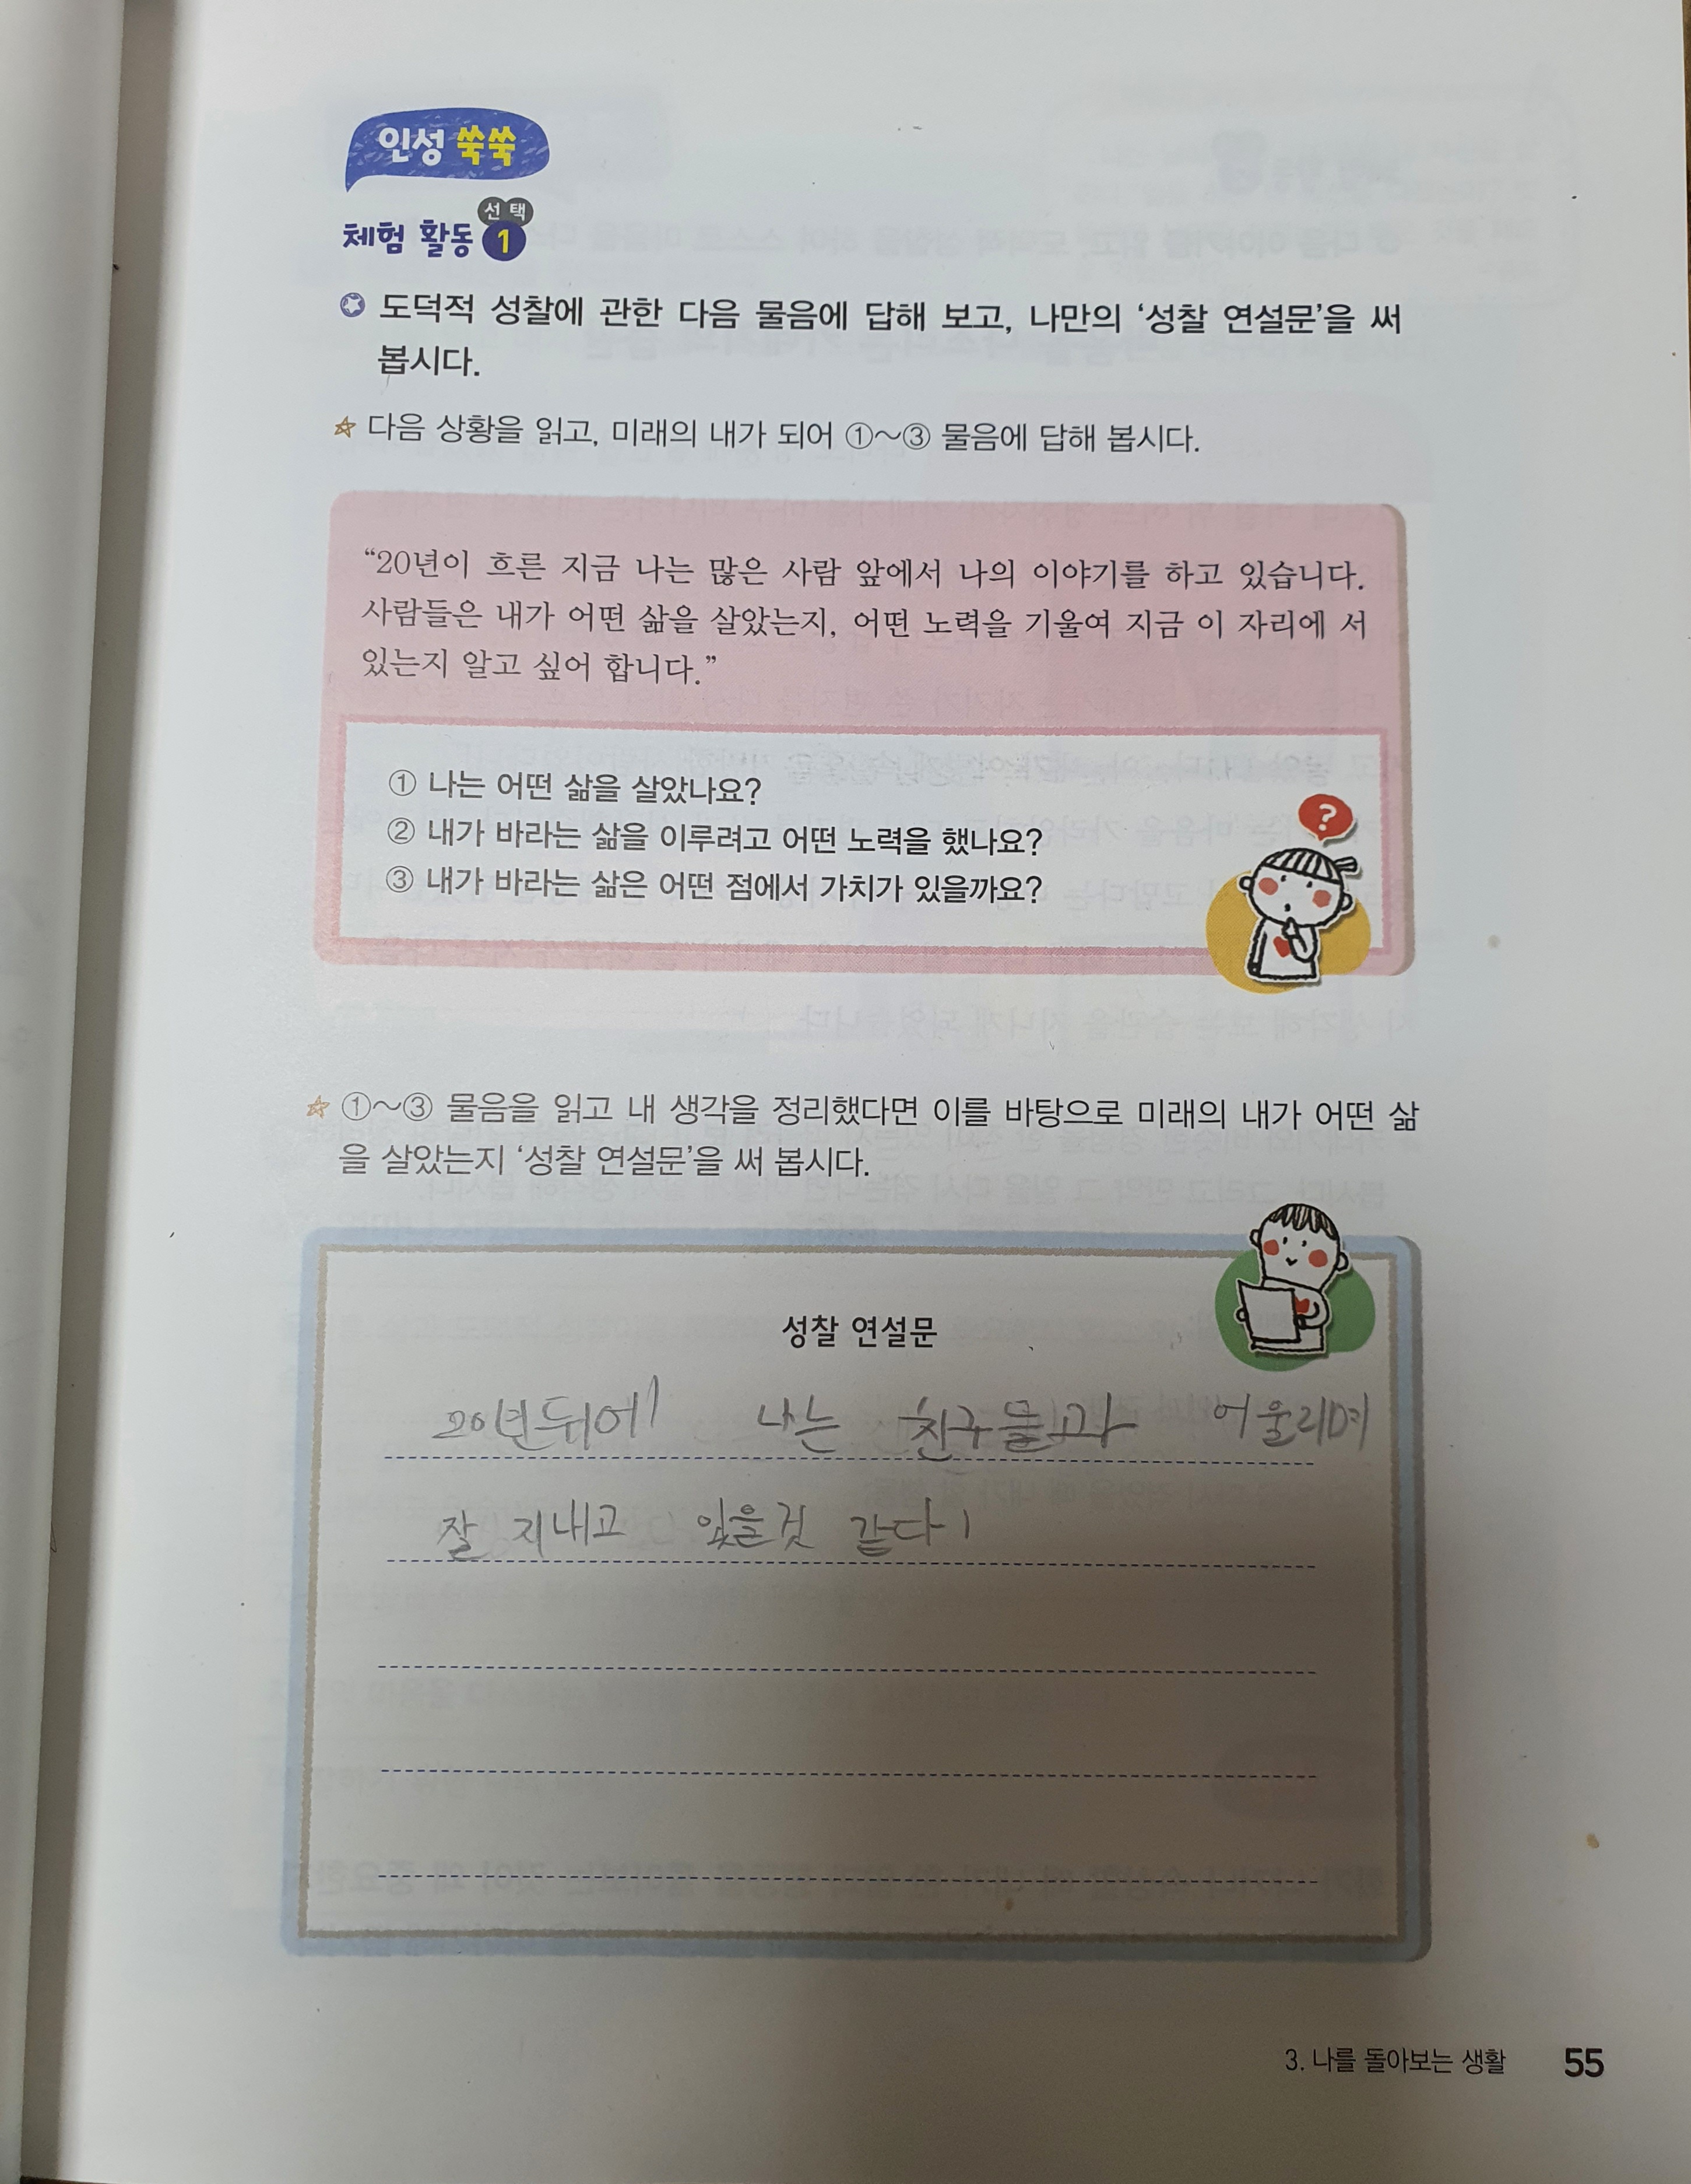 인성 쑥쑥
선택
체험 활동 1
도덕적 성찰에 관한 다음 물음에 답해 보고, 나만의 ‘성찰 연설문’을 써
봅시다.
다음 상황을 읽고, 미래의 내가 되어 ①~③ 물음에 답해 봅시다.
“20년이 흐른 지금 나는 많은 사람 앞에서 나의 이야기를 하고 있습니다.
사람들은 내가 어떤 삶을 살았는지, 어떤 노력을 기울여 지금 이 자리에 서
있는지 알고 싶어 합니다.”
① 나는 어떤 삶을 살았나요?
② 내가 바라는 삶을 이루려고 어떤 노력을 했나요?
③ 내가 바라는 삶은 어떤 점에서 가치가 있을까요?
?
①~③ 물음을 읽고 내 생각을 정리했다면 이를 바탕으로 미래의 내가 어떤 삶
을 살았는지 ‘성찰 연설문’을 써 봅시다.
성찰 연설문
20년뒤에 나는 친구들과 어울리며
잘 지내고 있을것 같다
3. 나를 돌아보는 생활 55